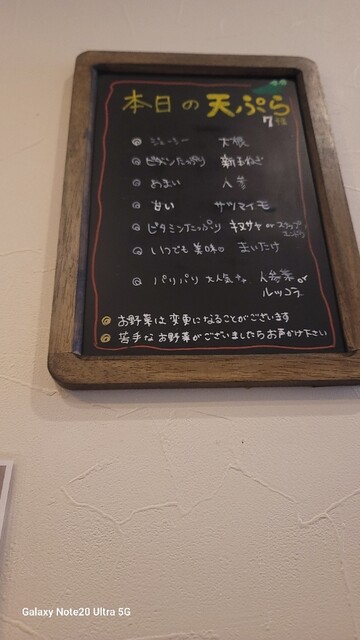 本日の天ぷら
7種
ジューシー 大根
ビタミンたっぷり 新玉ねぎ
あまい 人参
甘い サツマイモ
ビタミンたっぷり キヌサヤ or スナップ
いつでも美味 まいたけ
パリパリ 大人気 人参葉 or
ルッコラ
お野菜は変更になることがございます
苦手なお野菜がございましたらお声かけ下さい
Galaxy Note20 Ultra 5G